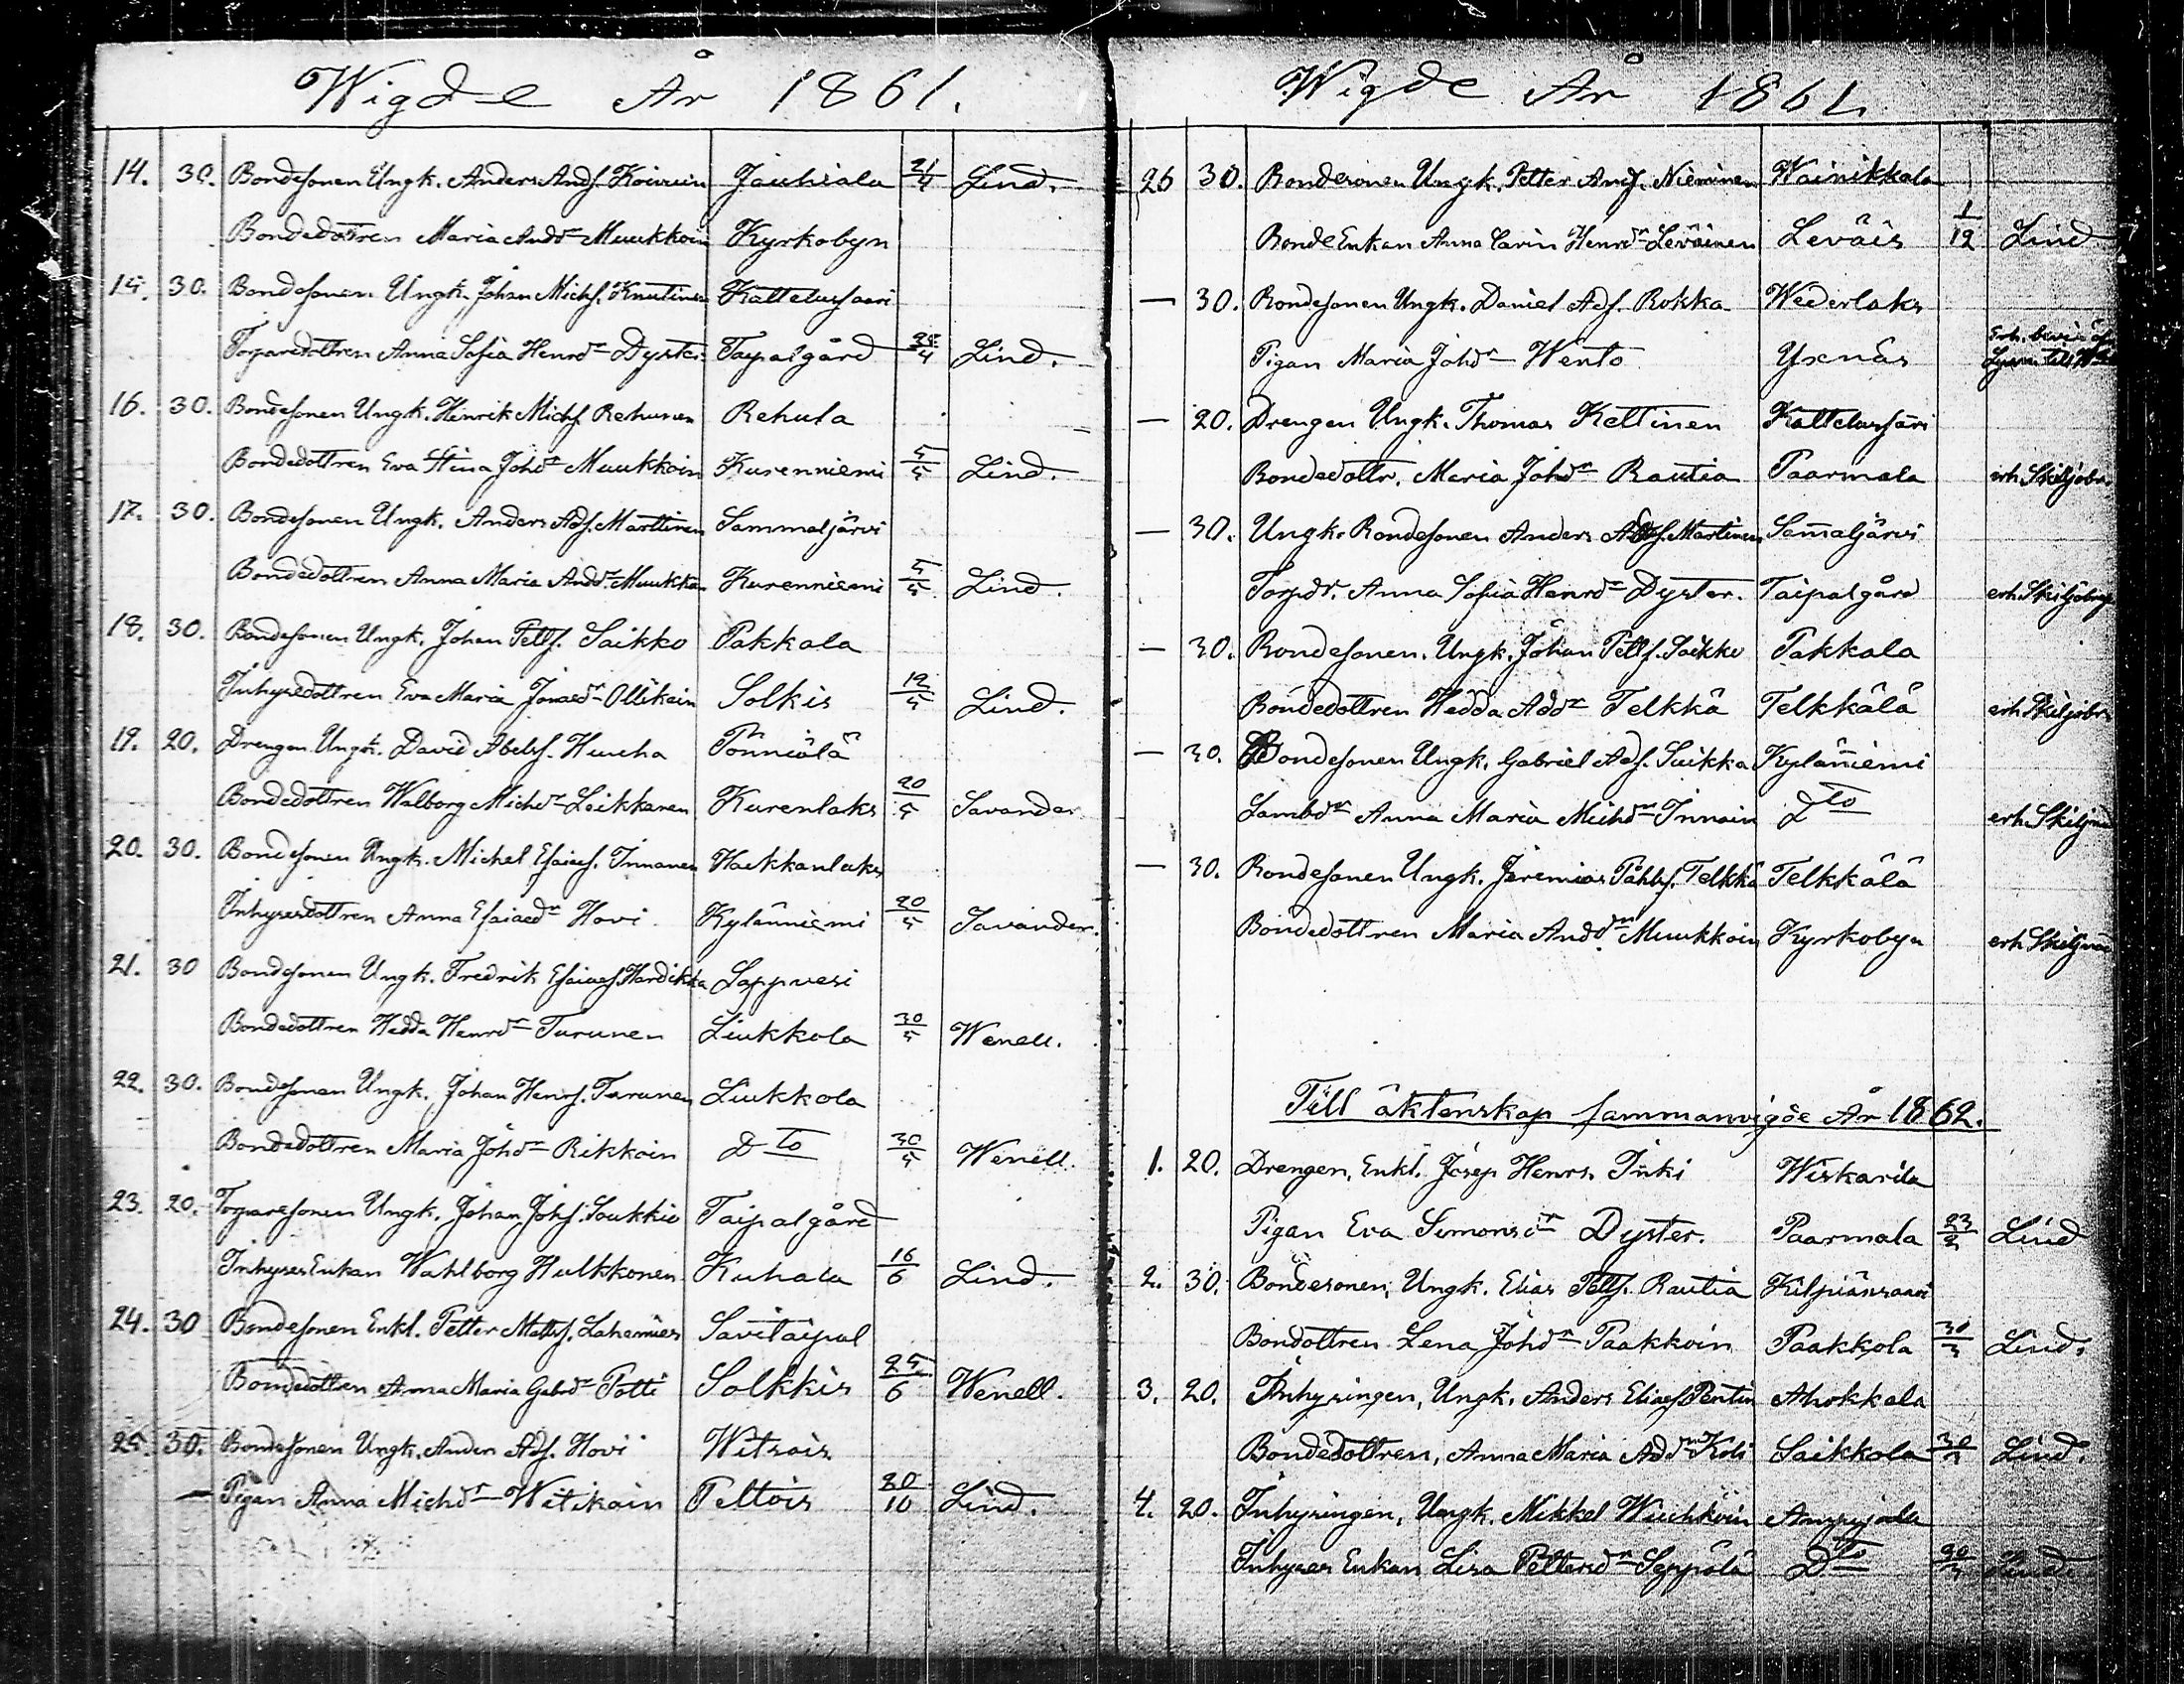 Wigde År 1861.
14. 30. Bondesonen Ungk. Anders Andſ. Koivuin Jauhiala 21/4 Lind.
Bondedottren Maria Andsdr Muukkoin Kyrkobyn
15. 30. Bondesonen Ungk. Johan Michſ. Knutinen Kattelussaari
Torparedottren Anna Sofia Henrdr Dyster Taipalgård 28/4 Lind.
16. 30. Bondesonen Ungk. Henrik Michſ. Rehunen Rehula
Bondedottren Eva Stina Johdr Muukkoin Kurenniemi 5/5 Lind.
17. 30. Bondesonen Ungk. Anders Adſ. Marttinen Sammaljärvi
Bondedottren Anna Maria Anddr Muukkoin Kurenniemi 5/5 Lind.
18. 30. Bondesonen Ungk. Johan Pettſ. Saikko Pakkala
Inhysedottren Eva Maria Jonaedr Ollikain Solkis 12/5 Lind.
19. 20. Drengen Ungk. David Abelsſ. Hucha Pönniälä
Bondedottren Walborg Michdr Leikkanen Kurenlaks 20/5 Savander
20. 30. Bondesonen Ungk. Michel Esaiasſ. Innanen Haikkanlaks
Inhysesdottren Anna Esaiaedr Hovi Kylänniemi 20/5 Savander.
21. 30 Bondesonen Ungk. Fredrik Esaiasſ. Hardikka Lappvesi
Bondedottren Hedda Henrdr Turunen Liukkola 30/5 Wenell.
22. 30. Bondesonen Ungk. Johan Henrſ. Turunen Liukkola
Bondedottren Maria Johdr Rikkoin Dto 30/5 Wenell.
23. 20. Torparesonen Ungk. Johan Johſ. Soukkio Taipalgård
Inhyses Enkan Wahlborg Hulkkonen Kuhala 16/6 Lind.
24. 30 Bondesonen Enkl. Petter Mattsſ. Lahemies Savitaipal
Bondedottren Anna Maria Gabrdr Potti Solkkis 25/6 Wenell.
25. 30. Bondesonen Ungk. Anders Adſ. Hovi Witsais
— Pigan Anna Michdr Witikain Peltois 20/10 Lind.
Wigde År 1861.
26 30. Bondesonen Ungk. Petter Andſ. Nieminen Wainikkala
Bonde Enkan Anna Carin Henrdr Leväinen Leväis 1/12 Lind
— 30. Bondesonen Ungk. Daniel Adſ. Rokka Wederlaks
Pigan Maria Johdr Wento Yxnäs
— 20. Drengen Ungk. Thomas Kettinen Kattelussäri
Bondedottr. Maria Johdr Rautia Paarmala erh Skiljobr.
— 30. Ungk. Bondesonen Anders Adſ. Martinen Sam̄aljärvi
Torpdr. Anna Sofia Henrdr Dyster. Taipalgård erh. Skiljobref
— 30. Bondesonen. Ungk. Johan Pettſ. Saikko Pakkala
Bondedottren Hedda Addr Telkkä Telkkälä erh Skiljobr.
— 30. Bondesonen Ungk. Gabriel Adſ. Suikka Kylän̄iemi
Lambdr Anna Maria Michdr Innain Dto erh Skiljn
— 30. Bondesonen Ungk. Jeremias Påhlsſ. Telkkä Telkkälä
Bondedottren Maria Anddr Muukkoin Kyrkobyn erh Skiljnä
Till äktenskap sammanvigde År 1862.
1. 20. Drengen, Enkl. Josep Henrs. Inki Wiskarila
Pigan Eva Simonsdr Dyster. Paarmala 23/2 Lind
2. 30. Bondesonen, Ungk. Elias Pettſ. Rautia Kilpiänsaari
Bondottren Lena Johdr Paakkoin Paakkola 30/3 Lind.
3. 20. Inhysingen, Ungk. Anders Eliasſ Pentin Ahokkala
Bondedottren, Anna Maria Addr Koti Saikkola 30/3 Lind.
4. 20. Inhysingen, Ungk. Mikkel Wiuhkoin
Inhyses Enkan Lisa Pettersdr Seppälä Dto 30/3 Lind.